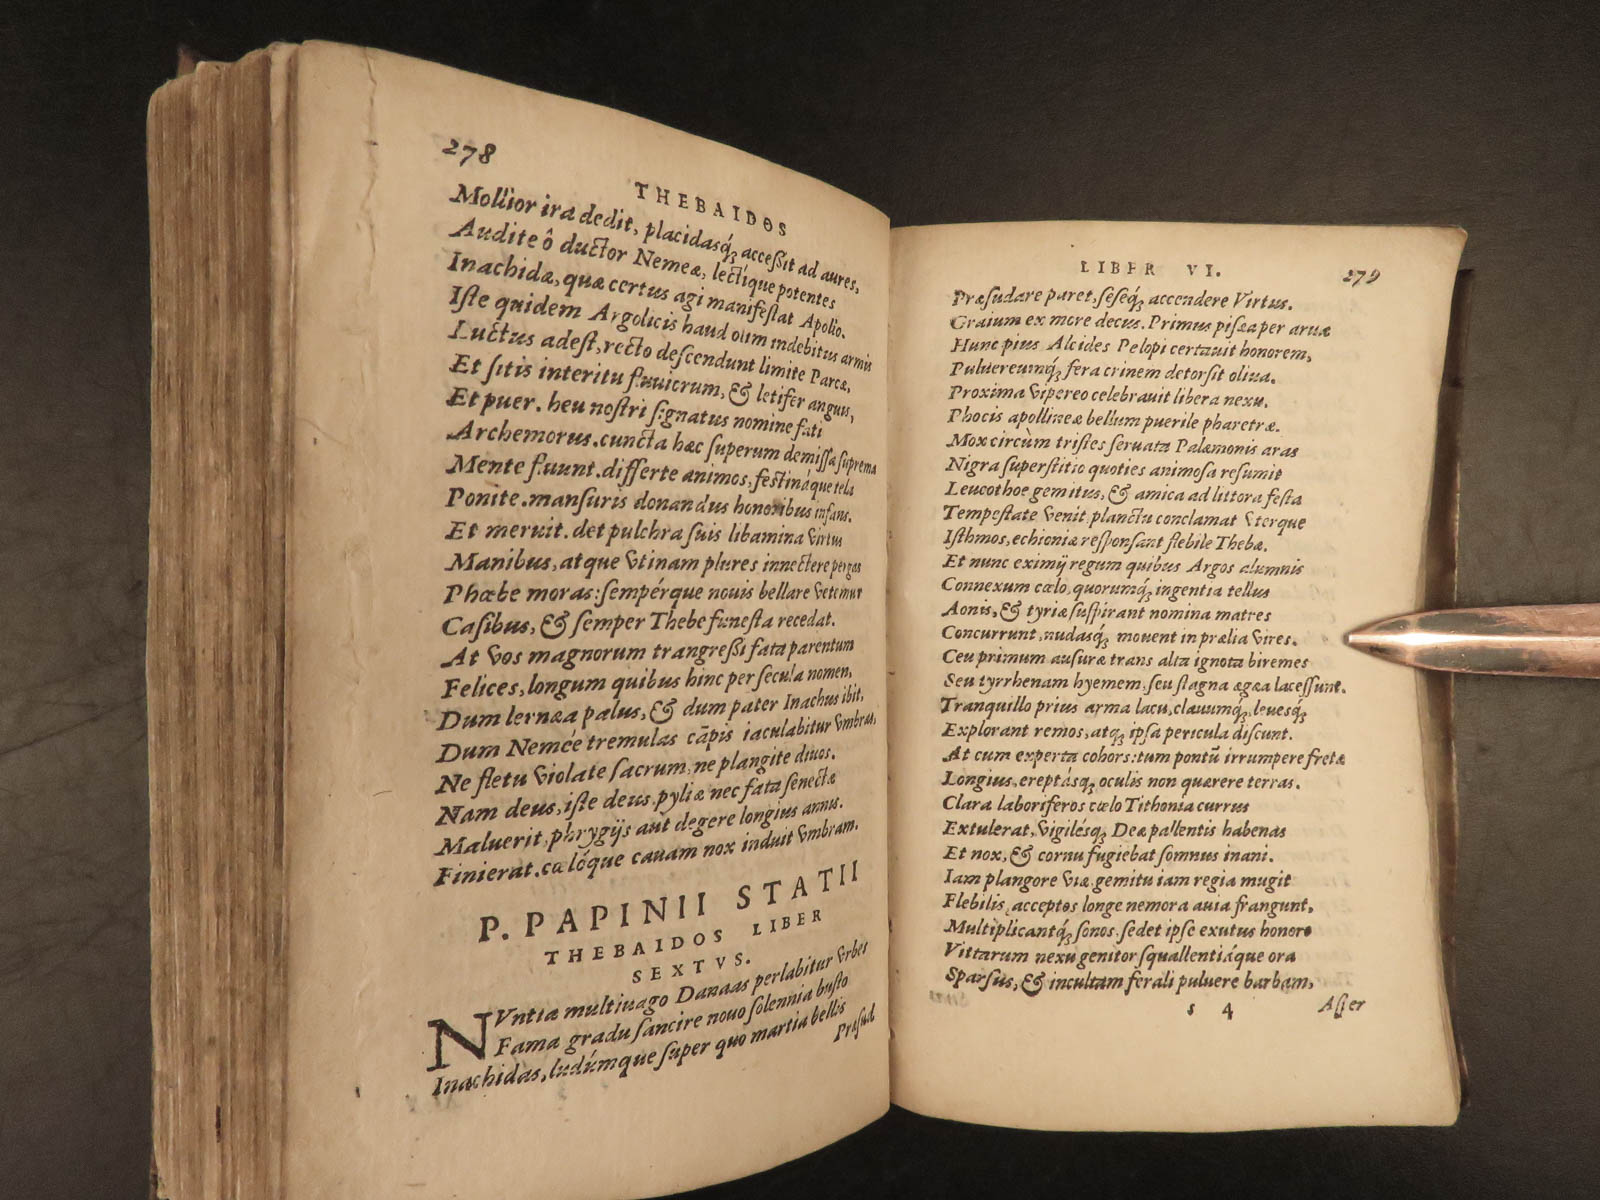 278
THEBAIDOS
Mollior ira dedit, placidasq́; acceßit ad aures,
Audite ô ductor Nemeæ, lectíque potentes
Inachidæ, quæ certus agi manifestat Apollo.
Iste quidem Argolicis haud olim indebitus armis
Luctus adest, recto descendunt limite Parcæ,
Et sitis interitu fluuiorum, & letifer anguis,
Et puer. heu nostri signatus nomine fati
Archemorus. cuncta hæc superum demissa suprema
Mente fluunt. differte animos, festináque tela
Ponite. mansuris donandus honoribus infans.
Et meruit. det pulchra suis libamina virtus
Manibus, atque vtinam plures innectere pergas
Phœbe moras: sempérque nouis bellare vetemur
Casibus, & semper Thebe funesta recedat.
At vos magnorum trangreßi fata parentum
Felices, longum quibus hinc per secula nomen,
Dum lernæa palus, & dum pater Inachus ibit,
Dum Nemée tremulas cāpis iaculabitur vmbras,
Ne fletu violate sacrum, ne plangite diuos.
Nam deus, iste deus. pyliæ nec fata senectæ
Maluerit, phrygijs aut degere longius annis.
Finierat. cælóque cauam nox induit vmbram.
P. PAPINII STATII
THEBAIDOS LIBER
SEXTVS.
NVntia multiuago Danaas perlabitur vrbes
Fama gradu sancire nouo solennia busto
Inachidas, ludúmque super quo martia bellis
Præsud
LIBER VI.
279
Præsudare paret, seseq́; accendere Virtus.
Graium ex more decus. Primus pisæa per arua
Hunc pius Alcides Pelopi certauit honorem,
Puluereumq́; fera crinem detorsit oliua.
Proxima vipereo celebrauit libera nexu.
Phocis apollineæ bellum puerile pharetræ.
Mox circùm tristes seruata Palæmonis aras
Nigra superstitio quoties animosa resumit
Leucothoe gemitus, & amica ad littora festa
Tempestate venit, planctu conclamat vterque
Isthmos, echioniæ responsant flebile Thebæ.
Et nunc eximij regum quibus Argos alumnis
Connexum cœlo, quorumq́; ingentia tellus
Aonis, & tyriæ suspirant nomina matres
Concurrunt, nudasq́; mouent in prælia vires.
Ceu primum ausuræ trans alta ignota biremes
Seu tyrrhenam hyemem, seu stagna ægæa lacessunt.
Tranquillo prius arma lacu, clauumq́;, leuesq́;
Explorant remos, atq; ipsa pericula discunt.
At cum experta cohors: tum pontū irrumpere fretæ
Longius, ereptásq; oculis non quærere terras.
Clara laboriferos cœlo Tithonia currus
Extulerat, vigilésq; Deæ pallentis habenas
Et nox, & cornu fugiebat somnus inani.
Iam plangore viæ, gemitu iam regia mugit
Flebilis, acceptos longe nemora auia frangunt,
Multiplicantq́; sonos. sedet ipse exutus honore
Vittarum nexu genitor squallentiáque ora
Sparsus, & incultam ferali puluere barbam,
s 4
Asper